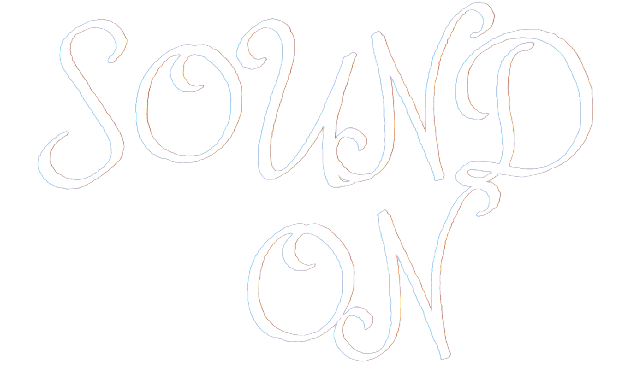 SOUND
ON